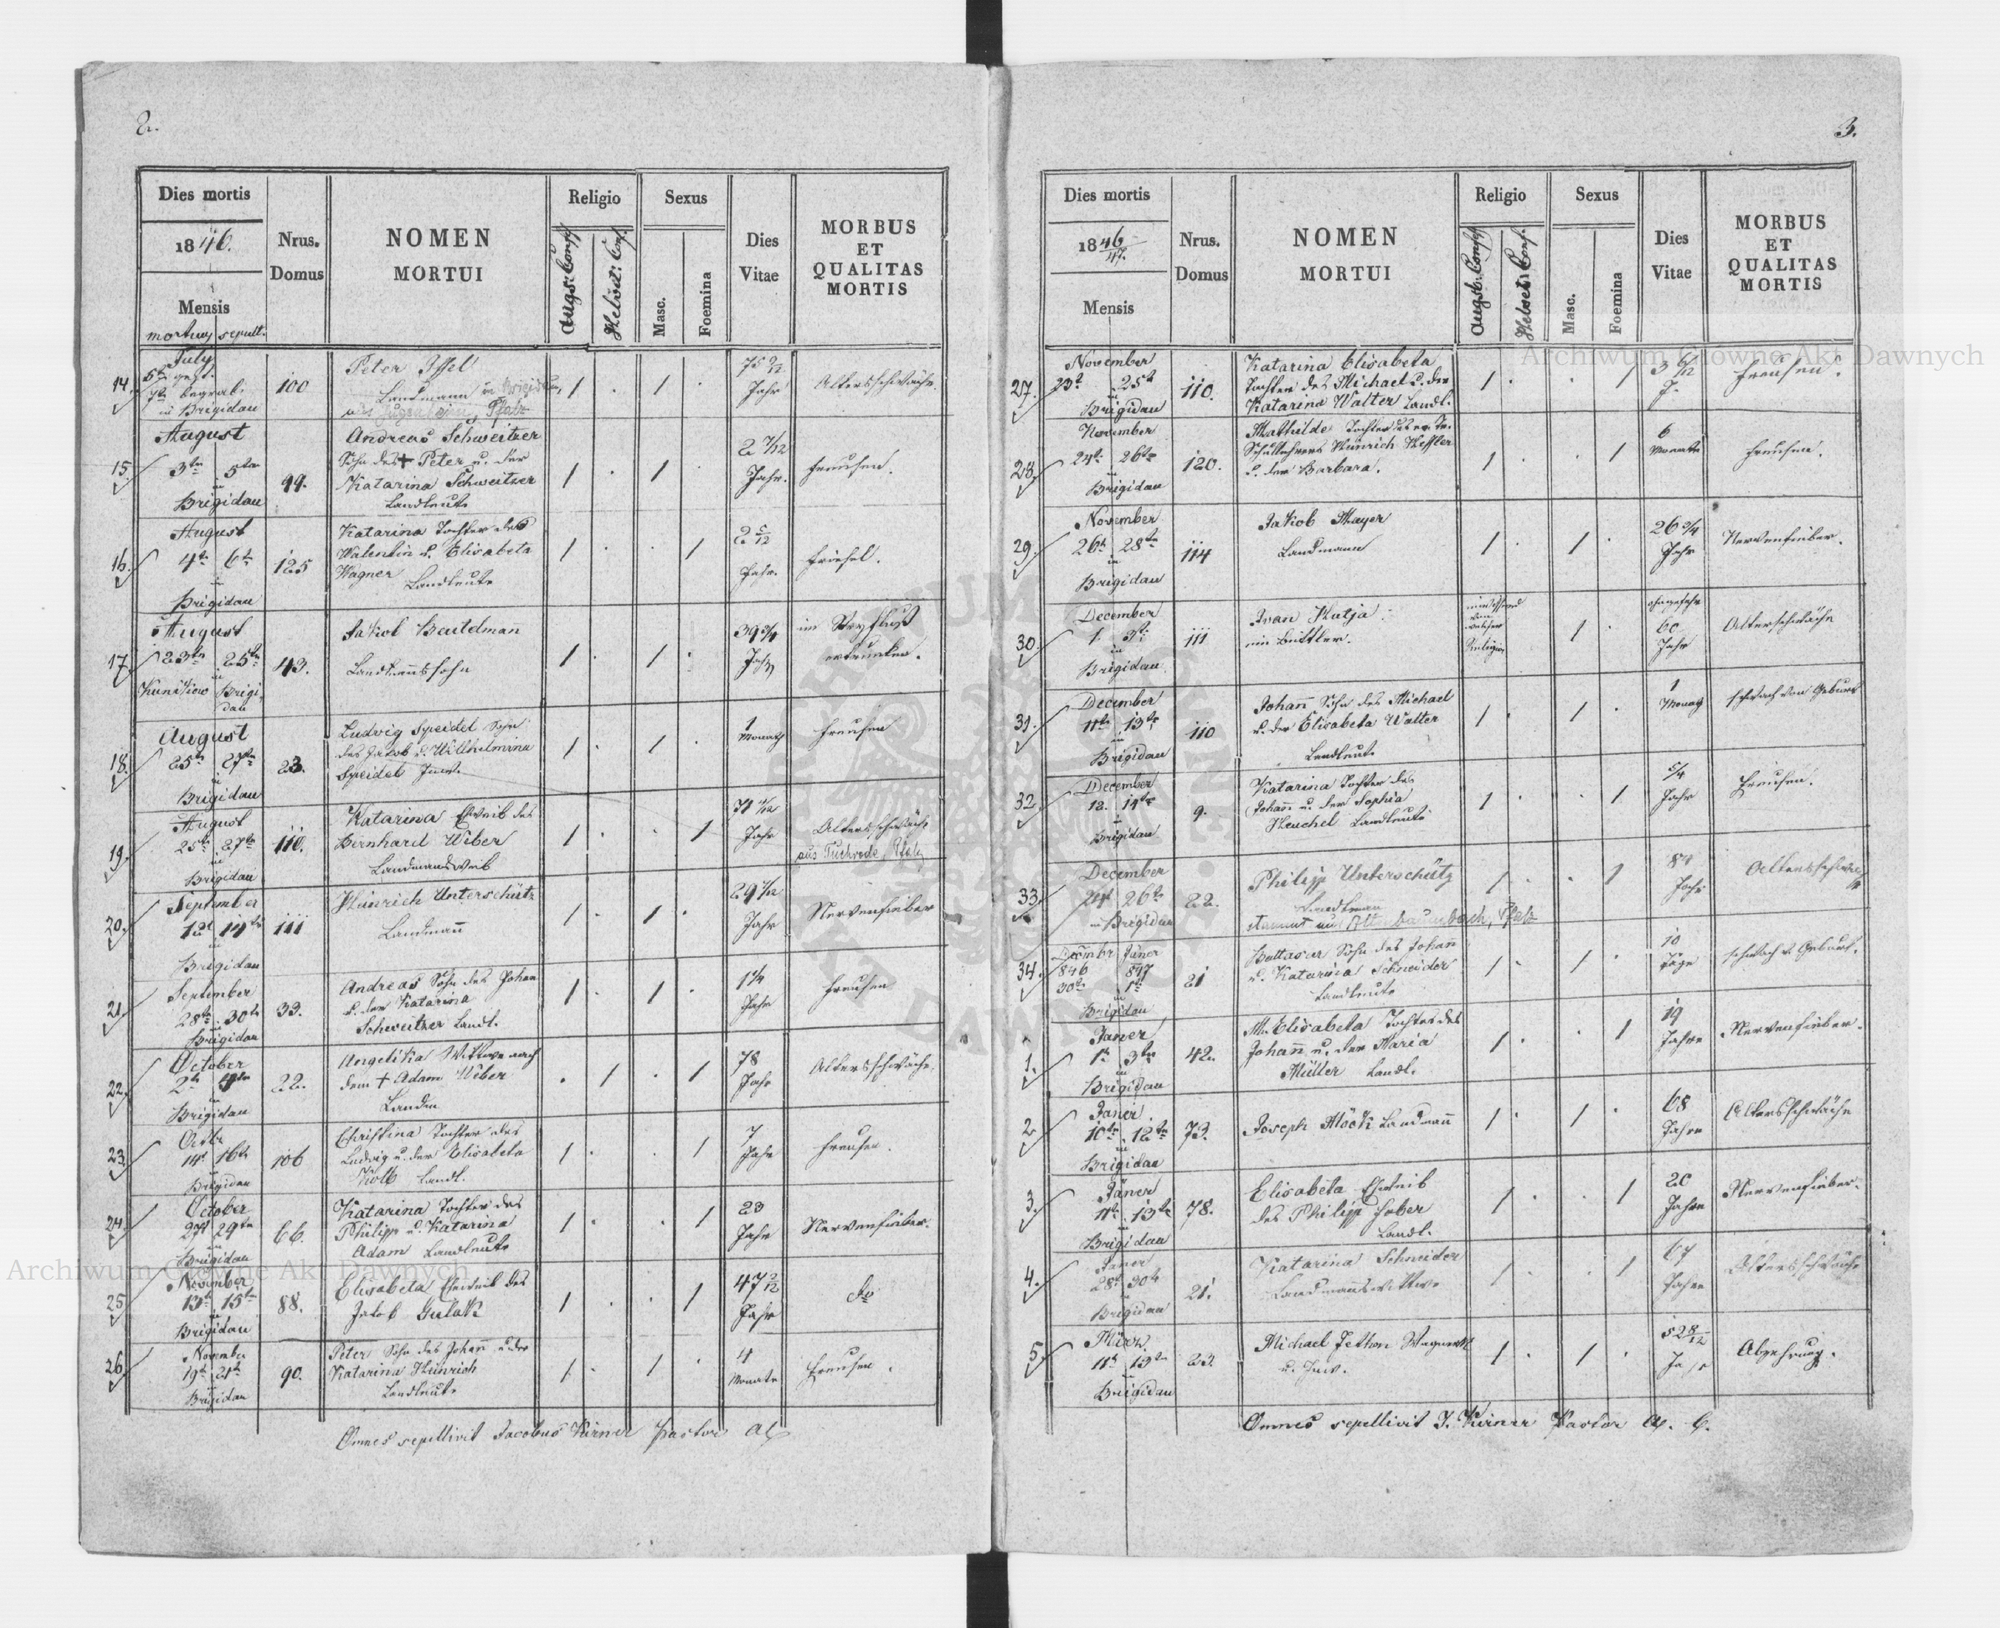 2.
Dies mortis
1846.
Mensis
mortuy sepult.
Nrus.
Domus
NOMEN
MORTUI
Religio
Augst: Conf.
Helvet: Conf.
Sexus
Masc.
Foemina
Dies
Vitae
MORBUS
ET
QUALITAS
MORTIS
14.
July
5t gest.
7t begrab.
in Brigidau
100
Peter
Landmann in Brigidau,
aus Pfalz
1 . 1 .
75
Jahr
Altersschwäche.
15.
August
3ten 5ten
in
Brigidau
99.
Andreas Schweitzer
Sohn des † Peter u. der
Katarina Schweitzer
Landleute
1 . 1 .
2 7/12
Jahr.
Freusen.
16.
August
4tn 6tn
in
Brigidau
125
Katarina Tochter des
Walentin u. Elisabeta
Wagner Landleute
1 . . 1
2 5/12
Jahr.
Friesel.
17.
August
23ten 25ten
in
Brigi-
dau
43.
Jakob
Landmannssohn
1 . 1 .
39 3/4
Jahr
im Stryfluß
ertrunken.
18.
August
25tn 27tn
in
Brigidau
23.
Ludvig Speidel Sohn
des Jakob u. Wilhelmina
Speidel Inw.
1 . 1 .
1
Monath
Freusen
19.
August
25tn 27tn
in
Brigidau
110.
Katarina Eheweib des
Bernhard Weber
Landmandsweib
1 . . 1
71
Jahr
Altersschwäche
aus Pfalz
20.
September
12t 14tn
in
Brigidau
111
Heinrich Unterschütz
Landmann
1 . 1 .
29
Jahr
Nervenfieber
21.
September
28tn 30tn
in
Brigidau
33.
Andreas Sohn des Johan
u. der Katarina
Schweitzer Landl.
1 . 1 .
1 1/4
Jahr
Freusen
22.
October
2tn 4ten
in
Brigidau
22.
Angelika Wittwe nach
dem † Adam Weber
. 1 . 1
78
Jahr
Altersschwäche.
23.
14t 16tn
in
Brigidau
106
Christina Tochter des
Ludvig u. der Elisabeta
Kolb Landl.
1 . . 1
7
Jahr
Freusen.
24.
October
27t 29tn
in
Brigidau
66.
Katarina Tochter des
Philipp u. Katarina
Adam Landleute
1 . . 1
23
Jahr
Nervenfieber.
25.
November
13t 15tn
in
Brigidau
88.
Elisabeta Eheweib des
Jakob Gulak
1 . . 1
47 2/12
Jahr
dto
26.
November
19tn 21tn
in
Brigidau
90.
Peter Sohn des Johann u der
Katarina Heinrich
Landleute
1 . 1 .
4
Monate
Freusen.
Omnes sepellivit Jacobus Keiner Pastor AC
3.
Dies mortis
1846/47.
Mensis
Nrus.
Domus
NOMEN
MORTUI
Religio
Augst: Conf.
Helvet: Conf.
Sexus
Masc.
Foemina
Dies
Vitae
MORBUS
ET
QUALITAS
MORTIS
27.
November
23t 25tn
in
Brigidau
110.
Katarina Elisabeta
Tochter des Michael u. der
Katarina Walter Landl.
1 . . 1
3 6/12
J.
Freusen.
28.
November
24tn 26tn
Brigidau
120.
Mathilde Tochter des
Schullehrers Heinrich
u. der Barbara.
1 . . 1
6
Monate
Freusen.
29.
November
26t 28tn
in
Brigidau
114
Jakob Mayer
Landmann
1 . 1 .
26 3/4
Jahr
Nervenfieber.
30.
December
1. 3tn
in
Brigidau
111
Ivan Kutja.
ein Bettler.
unwissend
von
welcher
Religion
1 .
ohngefehr
60
Jahr
Altersschwäche
31.
December
11tn 13tn
in
Brigidau
110
Johann Sohn des Michael
u. der Elisabeta Walter
Landleute
1 . 1 .
1
Monath
schwach von Geburt
32.
December
12. 14tn
in
Brigidau
9.
Katarina Tochter des
Johann u. der Sophia
Heuchel Landleute
1 . . 1
5/4
Jahr
Freusen.
33.
December
24t 26tn
in Brigidau
22.
Philipp Unterschütz
Landman
stammt aus Altenbaumbach, Pfalz
1 . . 1
84
Jahr
Altersschwäche
34.
Decembr Jäner
846 847
30tn 1t
in
Brigidau
21
Baltasar Sohn des Johann
u. Katarina Schneider
Landleute
1 . 1 .
10
Tage
schwach v. Geburt.
1.
Jäner
1t 3tn
in
Brigidau
42.
M. Elisabeta Tochter des
Johann u. der Maria
Müller Landl.
1 . . 1
19
Jahre
Nervenfieber.
2
Janer
10tn 12tn
in
Brigidau
73.
Joseph Landmann
1 . 1 .
68
Jahre
Altersschwäche
3.
Jäner
11tn 13tn
in
Brigidau
78.
Elisabeta Eheweib
des Philipp Faber
Landl.
1 . . 1
20
Jahre
Nervenfieber.
4.
Janer
28t 30tn
in
Brigidau
21.
Katarina Schneider
Landmannswittwe
1 . . 1
67
Jahre
Altersschwäche
5.
März
11t 13tn
in
Brigidau
23.
Michael
u. Inw.
1 . 1 .
52 8/12
Jahr
Abzehrung.
Omnes sepellivit J. Keiner Pastor A. C.
Archiwum Główne Akt Dawnych
Archiwum Główne Akt Dawnych